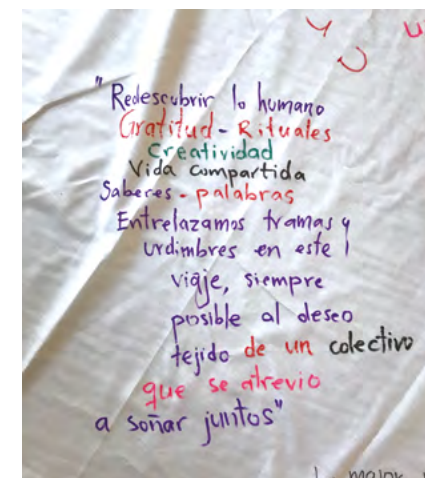 "Redescubrir lo humano
Gratitud - Rituales
Creatividad
Vida compartida
Saberes - palabras
Entrelazamos tramas y
urdimbres en este
viaje, siempre
posible al deseo
tejido de un colectivo
que se atrevio
a soñar juntos"